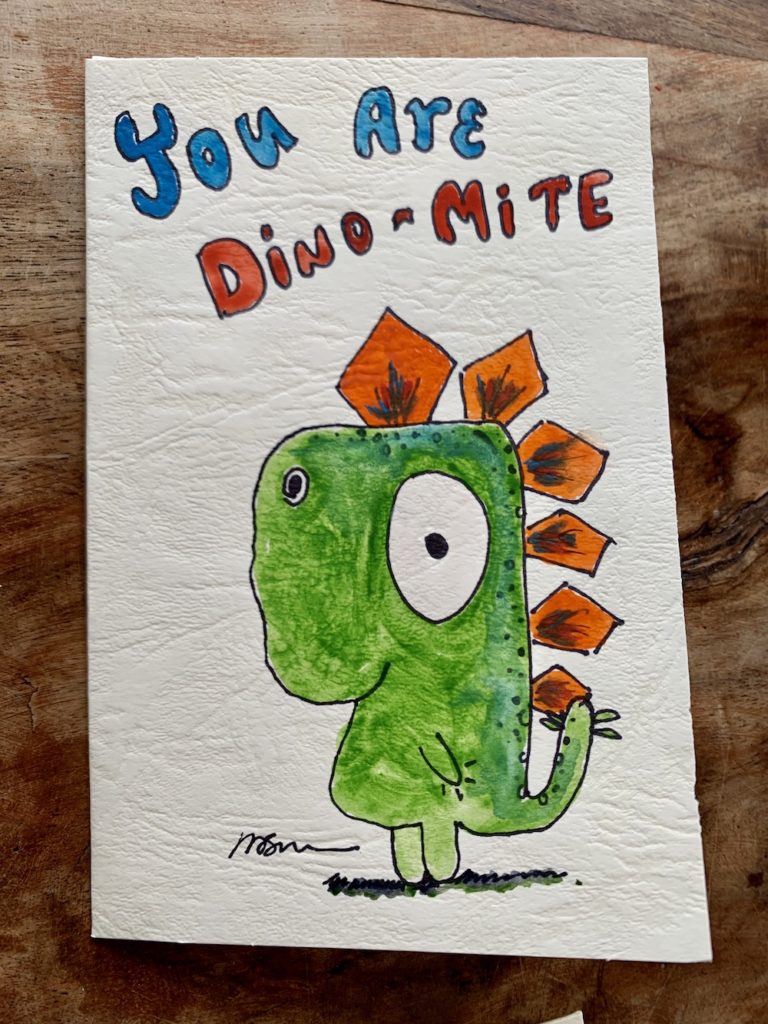 You Are
Dino-MiTE